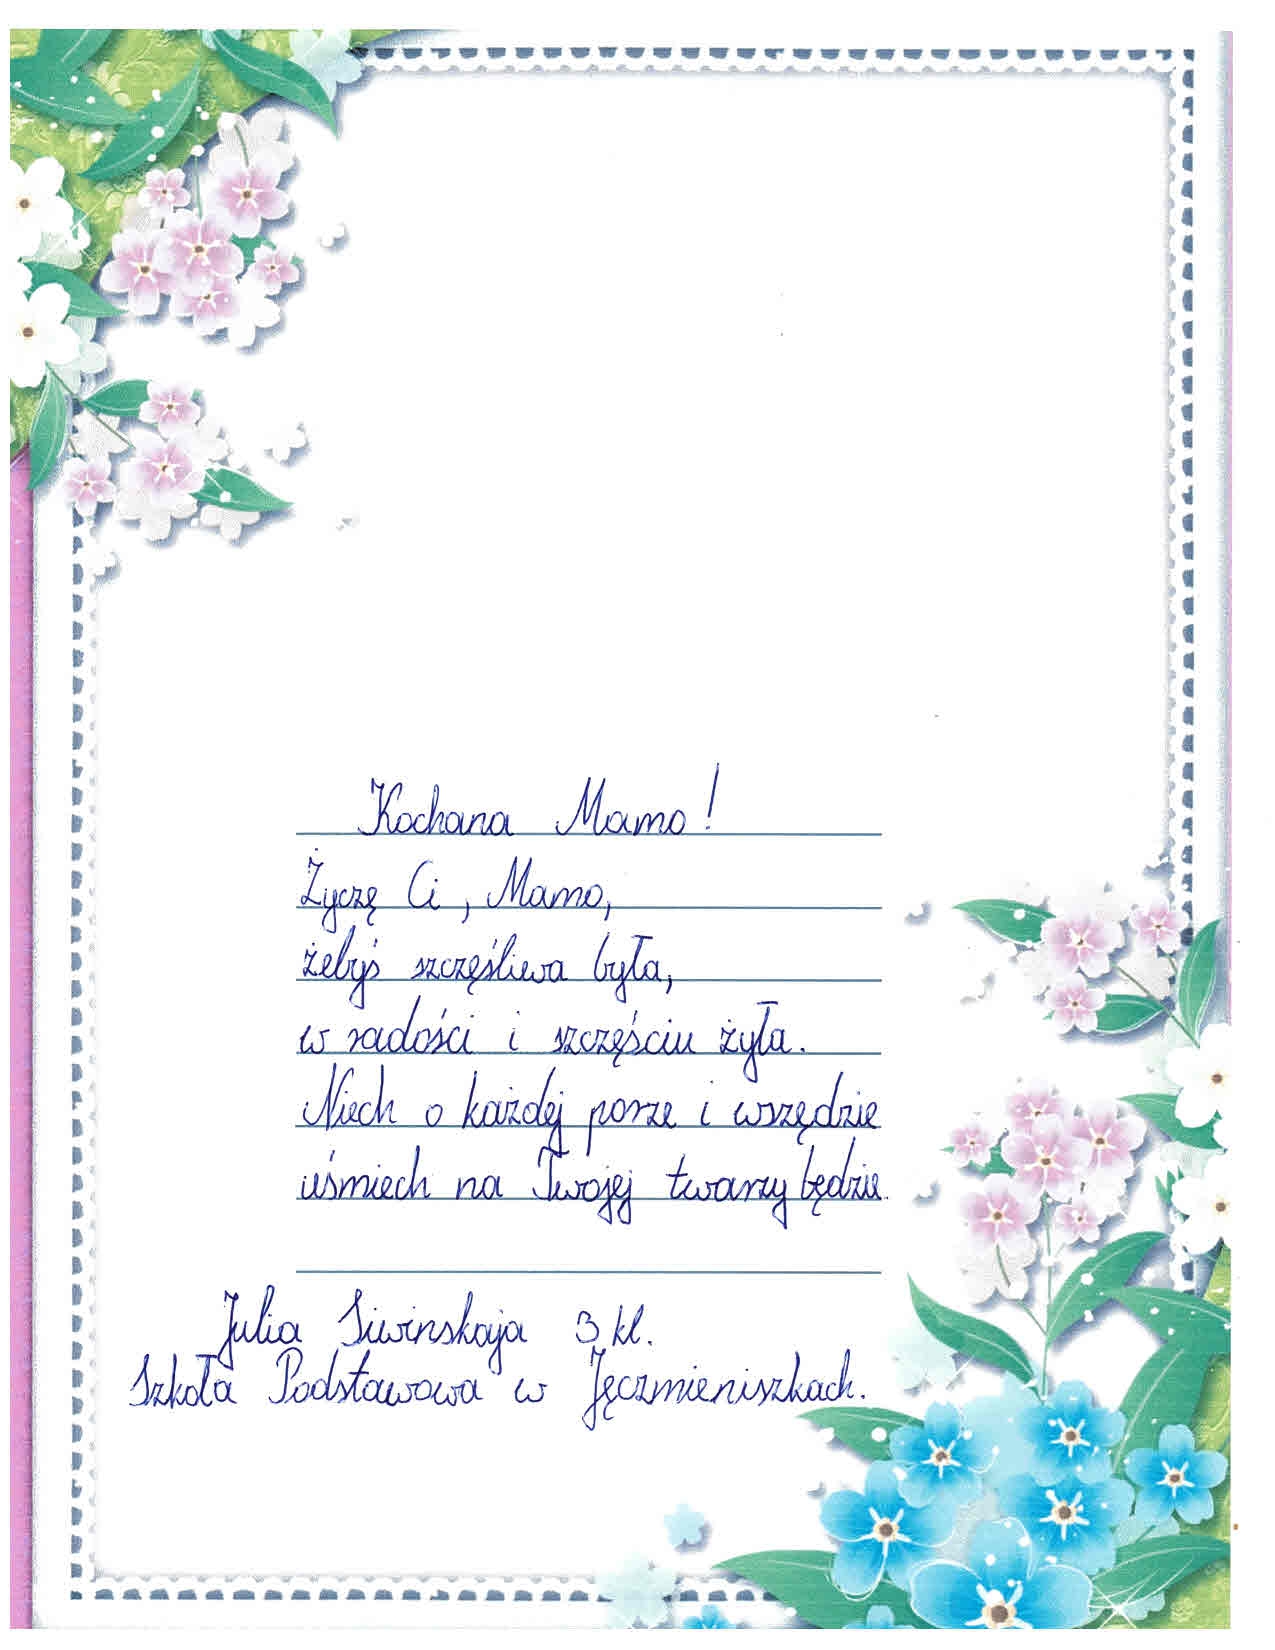 Kochana Mamo!
Życzę Ci, Mamo,
żebyś szczęśliwa była,
w radości i szczęściu żyła.
Niech o każdej porze i wszędzie
uśmiech na Twojej twarzy będzie.
Julia Siwinskaja 3 kl.
Szkoła Podstawowa w Jęczmieniszkach.